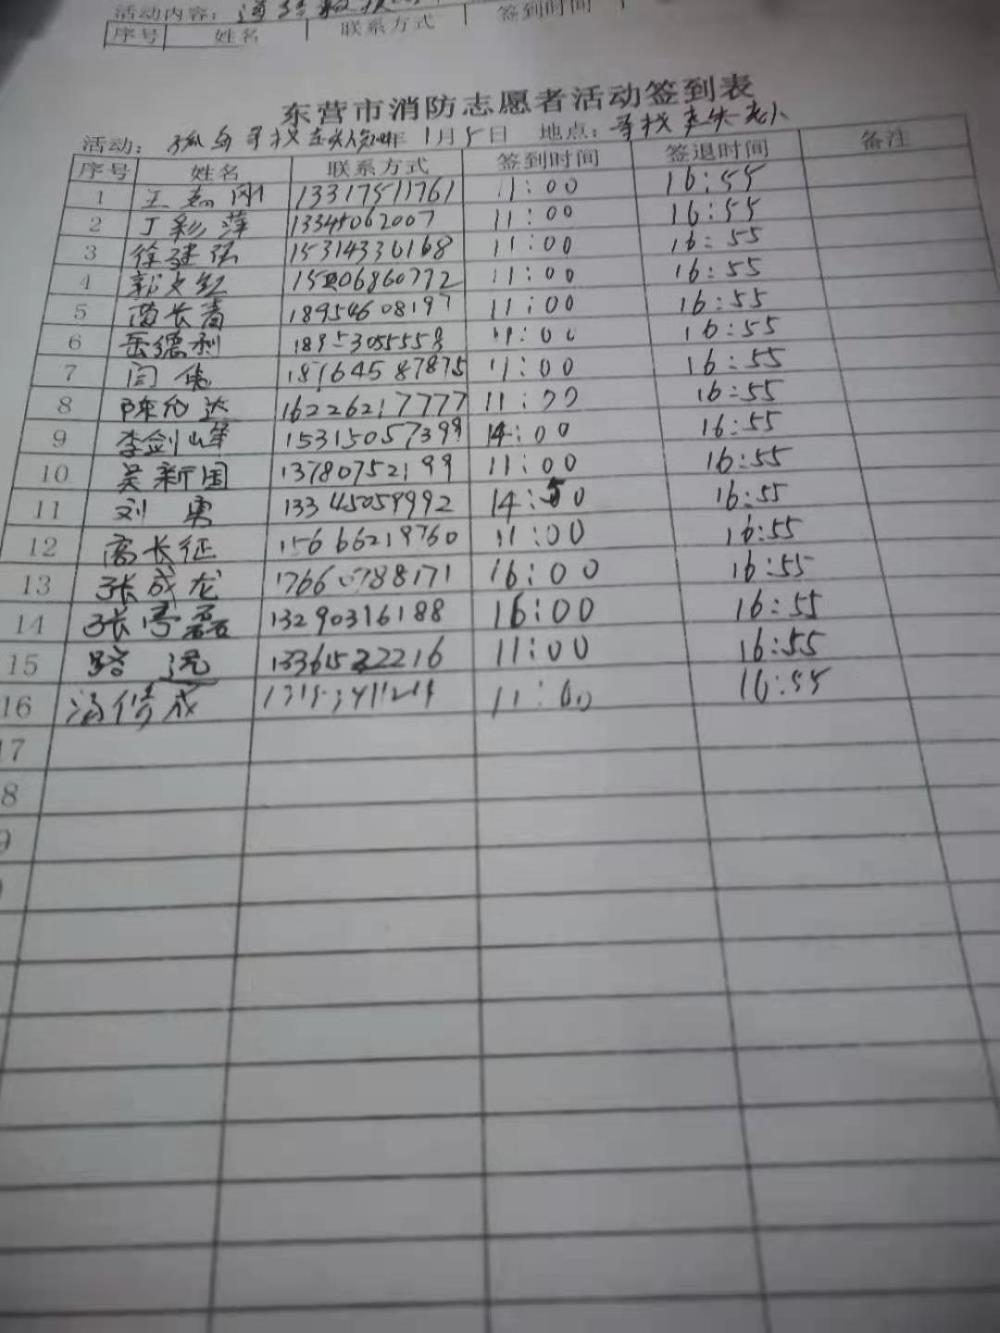 活动内容：
序号 姓名 联系方式 签到时间
东营市消防志愿者活动签到表
活动： 孤岛寻找 年1月5日 地点：寻找走失老人
序号 姓名 联系方式 签到时间 签退时间 备注
1 王志刚 13317511761 11:00 16:55
2 丁彩萍 13345062007 11:00 16:55
3 徐建强 15314330168 11:00 16:55
4 郭文红 15206860772 11:00 16:55
5 苗长青 18954608197 11:00 16:55
6 岳德利 18953055558 11:00 16:55
7 闫 18764587875 11:00 16:55
8 陈伯达 16226217777 11:00 16:55
9 李剑峰 15315057399 14:00 16:55
10 吴新国 13780752199 11:00 16:55
11 刘勇 13345059992 14:50 16:55
12 高长征 15666219760 11:00 16:55
13 张成龙 17660788171 16:00 16:55
14 张雪磊 13290316188 16:00 16:55
15 路远 13361522216 11:00 16:55
16 成 11:00 16:55
17
8
9